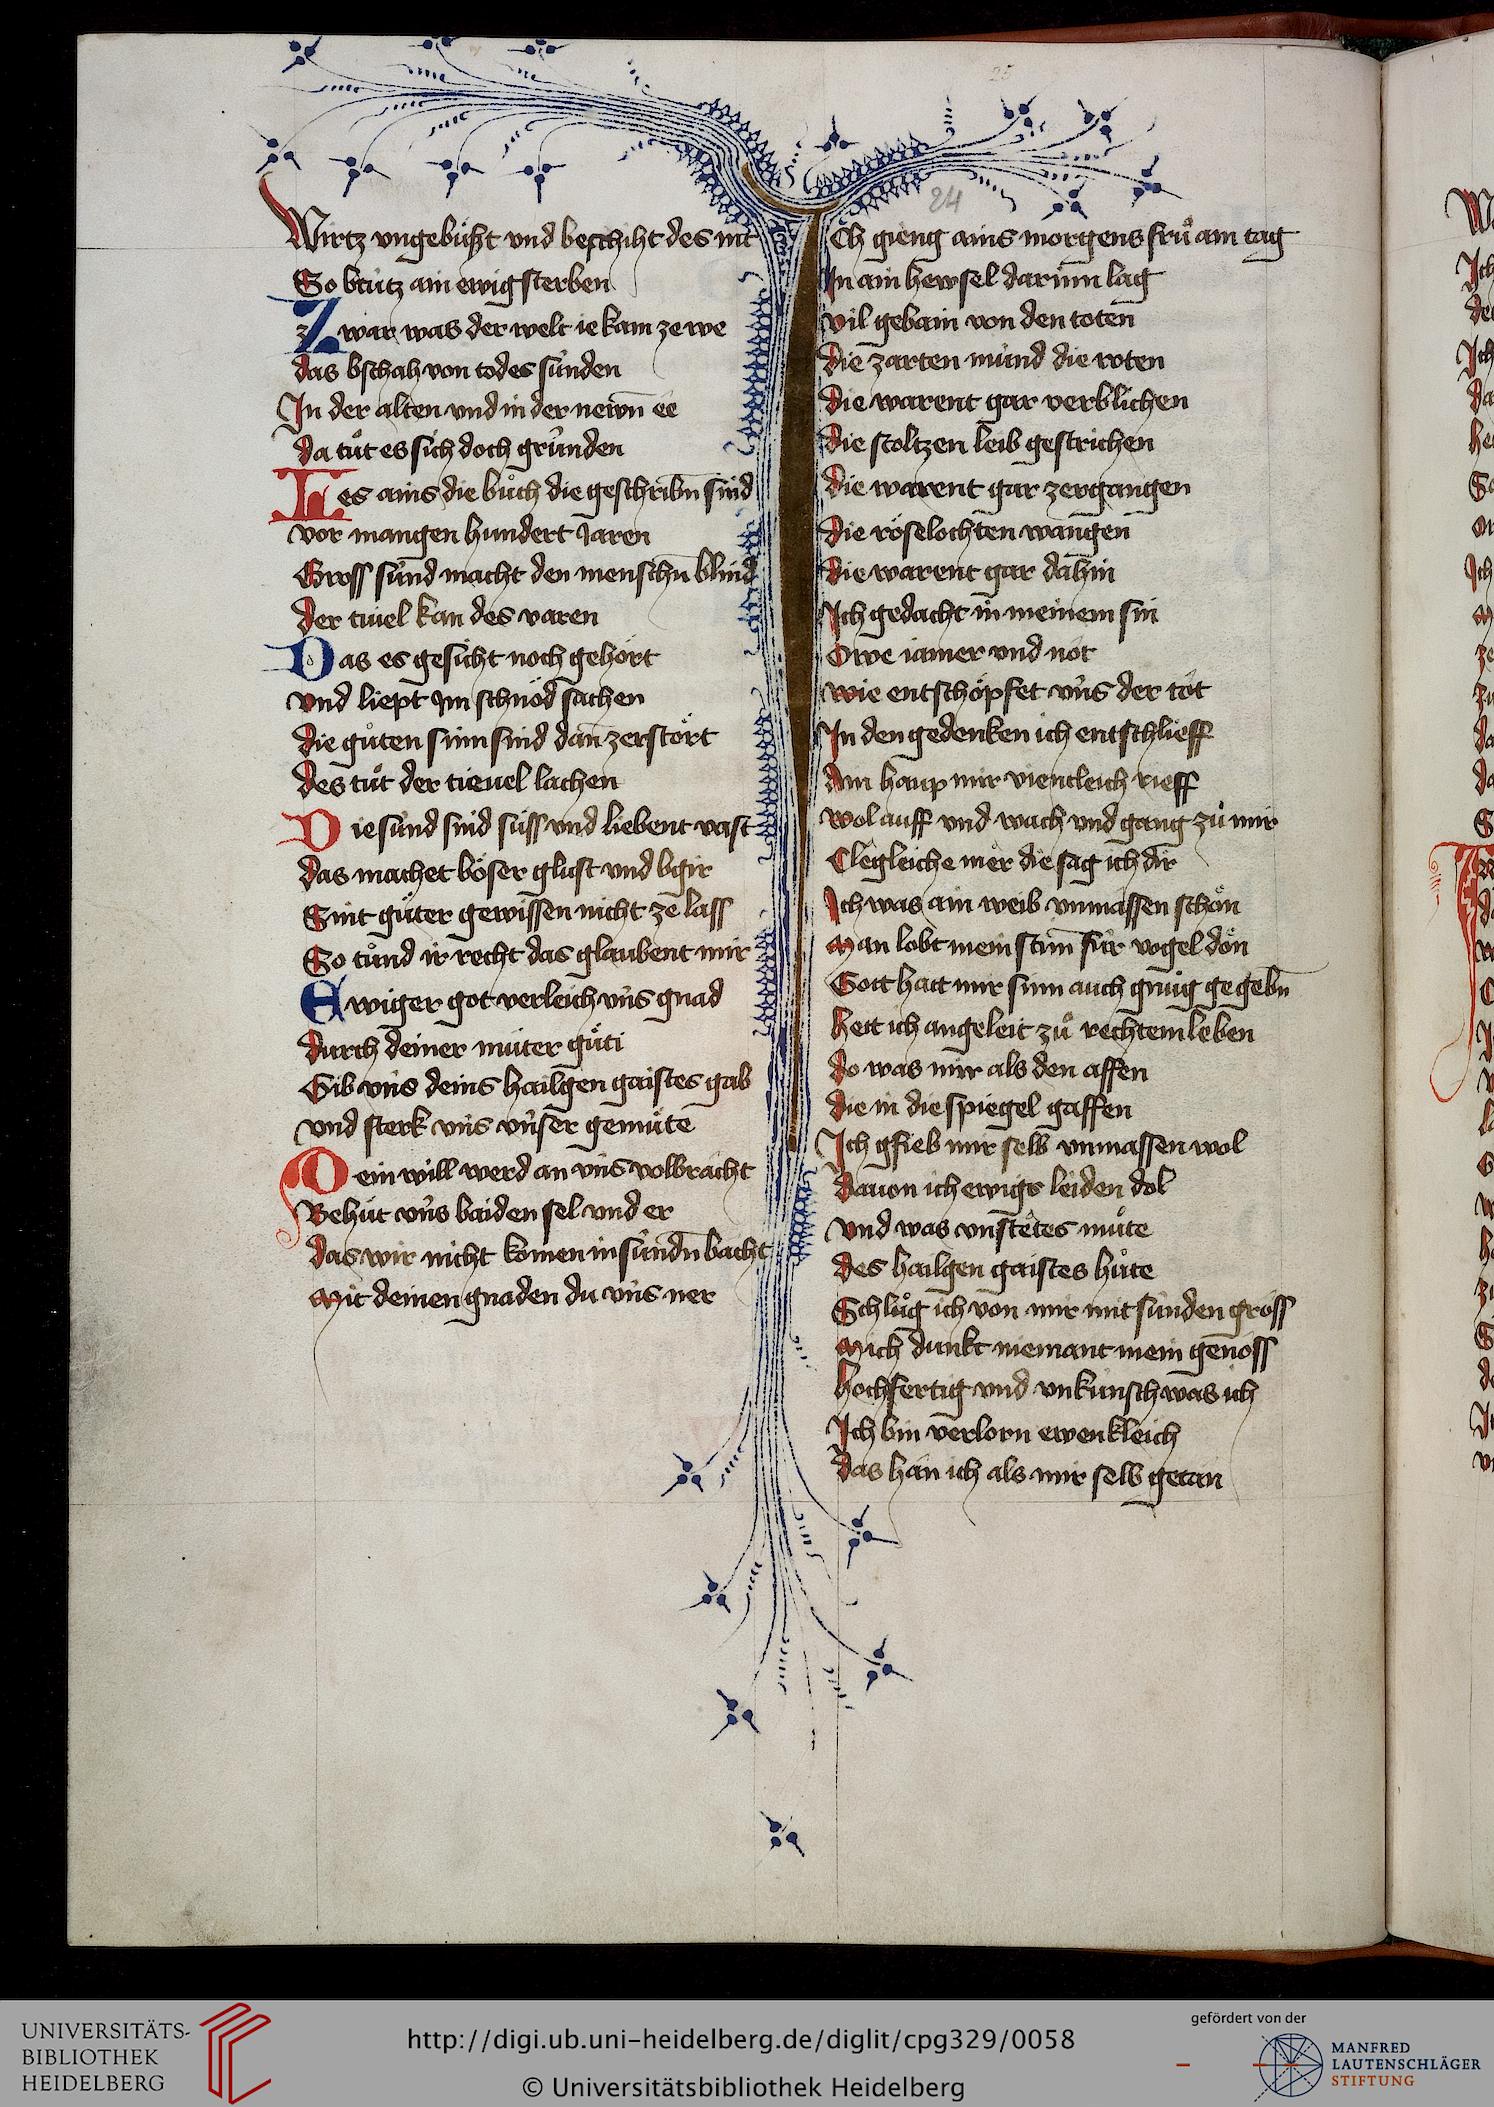 Wirtz vngebüszt vnd beschiht des nit
So bcütz ain ewig sterben
Zwar was der welt ie kam ze we
das bschah von todes sünden
In der alten vnd in der newn̄ ee
da tuͦt es sich doch grúnden
Les ains die buͦch die geschribn̄ sind
vor mangen hundert Jaren
Gross súnd macht den menschn̄ blind
der tiuel kan des varen
Das es gesicht noch gehört
vnd liept Im schnöd sachen
die guͦten sinn sind dan̄ zerstört
des tuͦt der tieuel lachen
Die sünd sind süss vnd liebent vast
das machet böser glust vnd bgir
Sint guͦter gewissen nicht ze lass
So tuͦnd ir recht das glaubent mir
Ewiger got verleich vns gnad
durch deiner muter guͤti
Gib vns deins hailgen gaistes gab
vnd sterk vns vnser gemuͤte
Dein will werd an vns volbracht
Behüt vns baiden sel vnd er
das wir nicht komen in sündn̄ bacht
Mit deinen gnaden du vns ner
24
Ich gieng ains morgens fruͦ am tag
In ain hewsel darinn lag
vil gebain von den toten
die zarten mund die roten
die warent gar verblichen
die stoltzen leib gestrichen
die warent gar zergangen
die röselochten wangen
die warent gar dahin
Ich gedacht in meinem sin
Owe iamer vnd not
wie entschöpfet vns der tot
In den gedenken ich entschlieff
Am haup mir vientleich rieff
wol auff vnd wach vnd gang zuͦ mir
Clegleiche mer die sag ich dir
Ich was ain weib vnmassen schön
Man lobt mein stim̄ für vogel dön
Gott hatt mir sinn auch gnuͦg gegebn̄
hett ich angeleit zuͦ rechtem leben
do was mir als den affen
die in die spiegel gaffen
Ich gfieb mir selb vnmassen wol
dauon ich ewigs leiden dol
vnd was vnstetes muͦte
des hailgen gaistes huͦte
Schluͦg ich von mir mit sünden gross
mich dunkt niemant mein genoss
hochfertig vnd vnkunsch was ich
Ich bin verlorn ewenkleich
das han ich als mir selb getan
UNIVERSITÄTS-
BIBLIOTHEK
HEIDELBERG
http://digi.ub.uni-heidelberg.de/diglit/cpg329/0058
© Universitätsbibliothek Heidelberg
gefördert von der
MANFRED
LAUTENSCHLÄGER
STIFTUNG